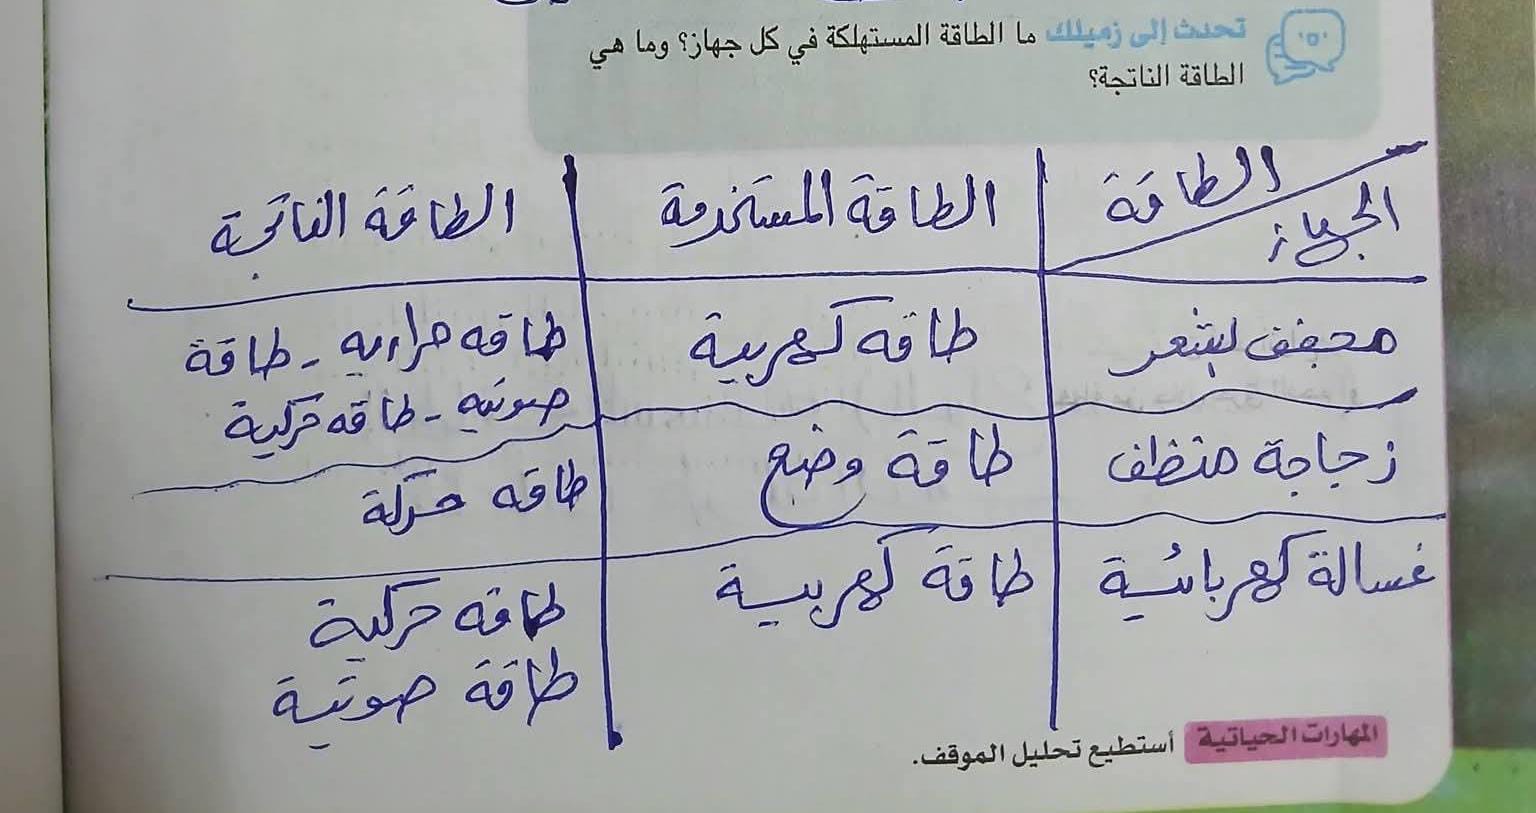 تحدث إلى زميلك ما الطاقة المستهلكة في كل جهاز؟ وما هي
الطاقة الناتجة؟
الطاقة
الجهاز
الطاقة المستخدمة
الطاقة الناتجة
مجفف لشعر
طاقه كهربية
طاقه حراريه - طاقة
صوتيه - طاقه حركية
زجاجة منظف
طاقة وضع
طاقه حركة
غسالة كهربائية
طاقة كهربية
طاقه حركية
طاقة صوتية
المهارات الحياتية أستطيع تحليل الموقف.